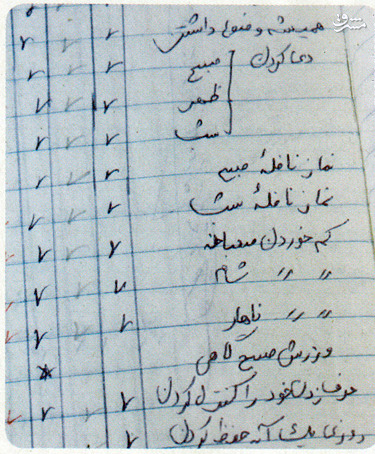 مشرق
همیشه وضو داشتن
دعا کردن صبح
ظهر
شب
نماز نافلهٔ صبح
نماز نافلهٔ شب
کم خوردن صبحانه
〃 〃 شام
〃 〃 ناهار
ورزش صبح گاهی
حرف زدن خود را کنترل کردن
روزی یک آیه حفظ کردن